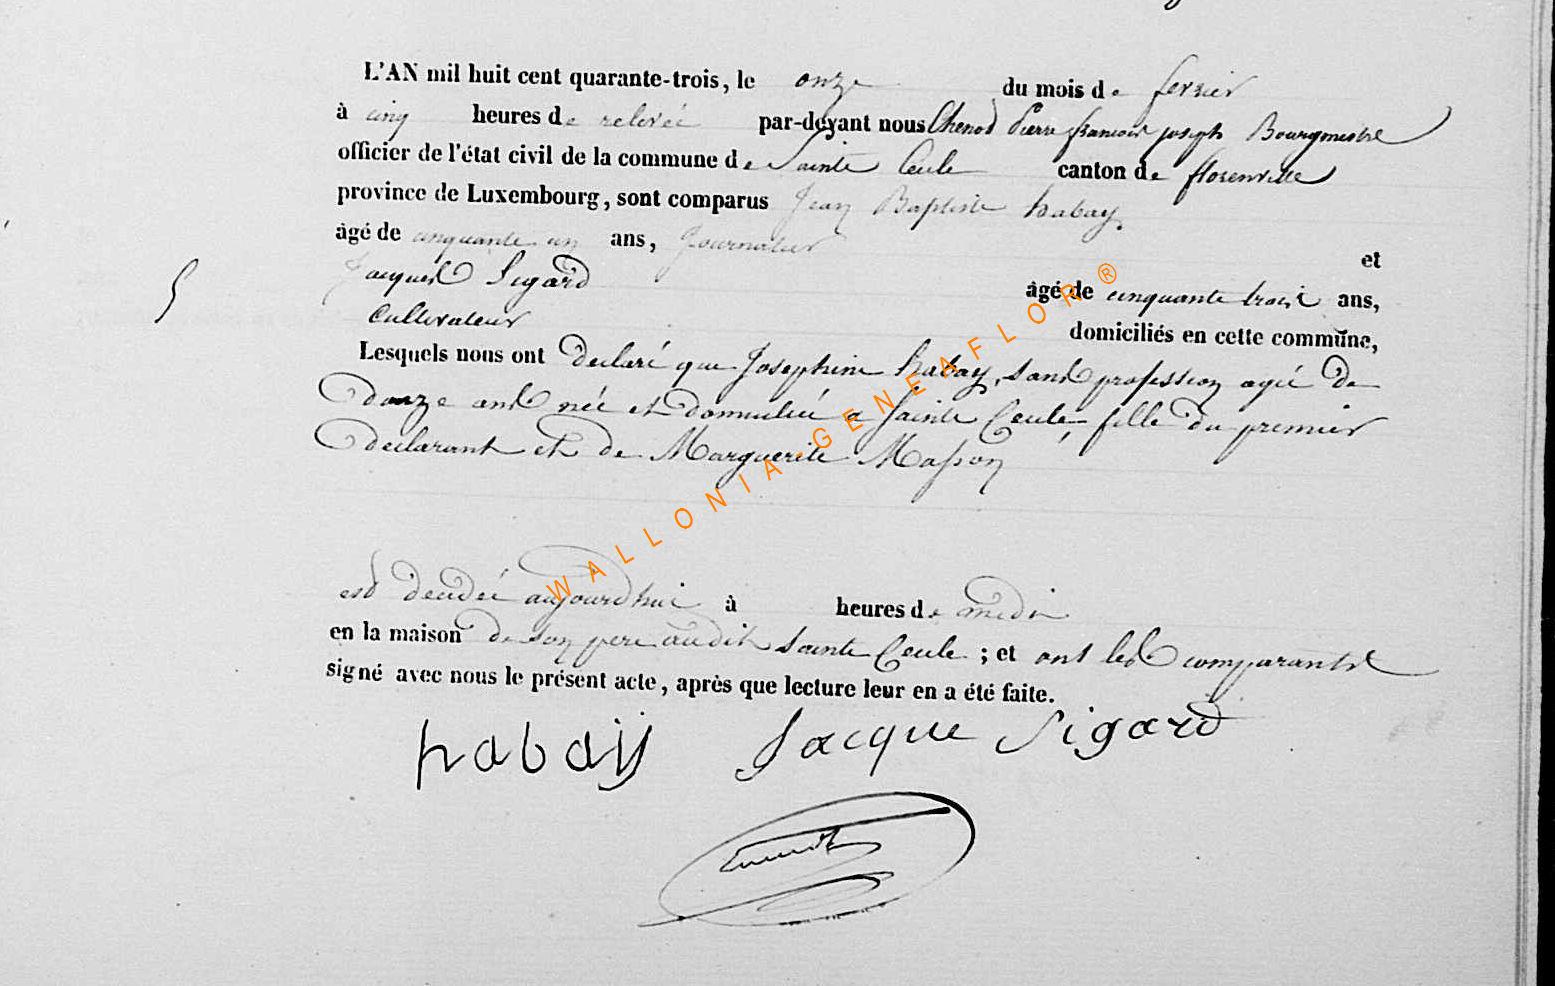 L'AN mil huit cent quarante-trois, le onze du mois de fevrier
à cinq heures de relevée par-devant nous Chenot Pierre francois joseph Bourgmestre
officier de l'état civil de la commune de Sainte Cecile canton de florenville
province de Luxembourg, sont comparus Jean Baptiste habay
âgé de cinquante un ans, Journalier et
Jacques Sigard âgé de cinquante trois ans,
Cultivateur domiciliés en cette commune,
Lesquels nous ont declaré que Josephine habay, sans profession agée de
douze ans née et domiciliée a Sainte Cecile, fille du premier
declarant et de Marguerite Masson
est decedée aujourdhui à heures de midi
en la maison de son pere audit Sainte Cecile ; et ont les comparants
signé avec nous le présent acte, après que lecture leur en a été faite.
habaÿ Jacque Sigard
WALLONIA-GENEAFLOR®